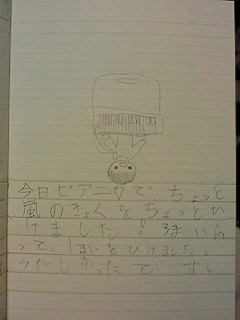 今日ピアニカで、ちょっと
嵐のきょくをちょっとひ
けました!
って、1まいをひけました。
うれしかったです。